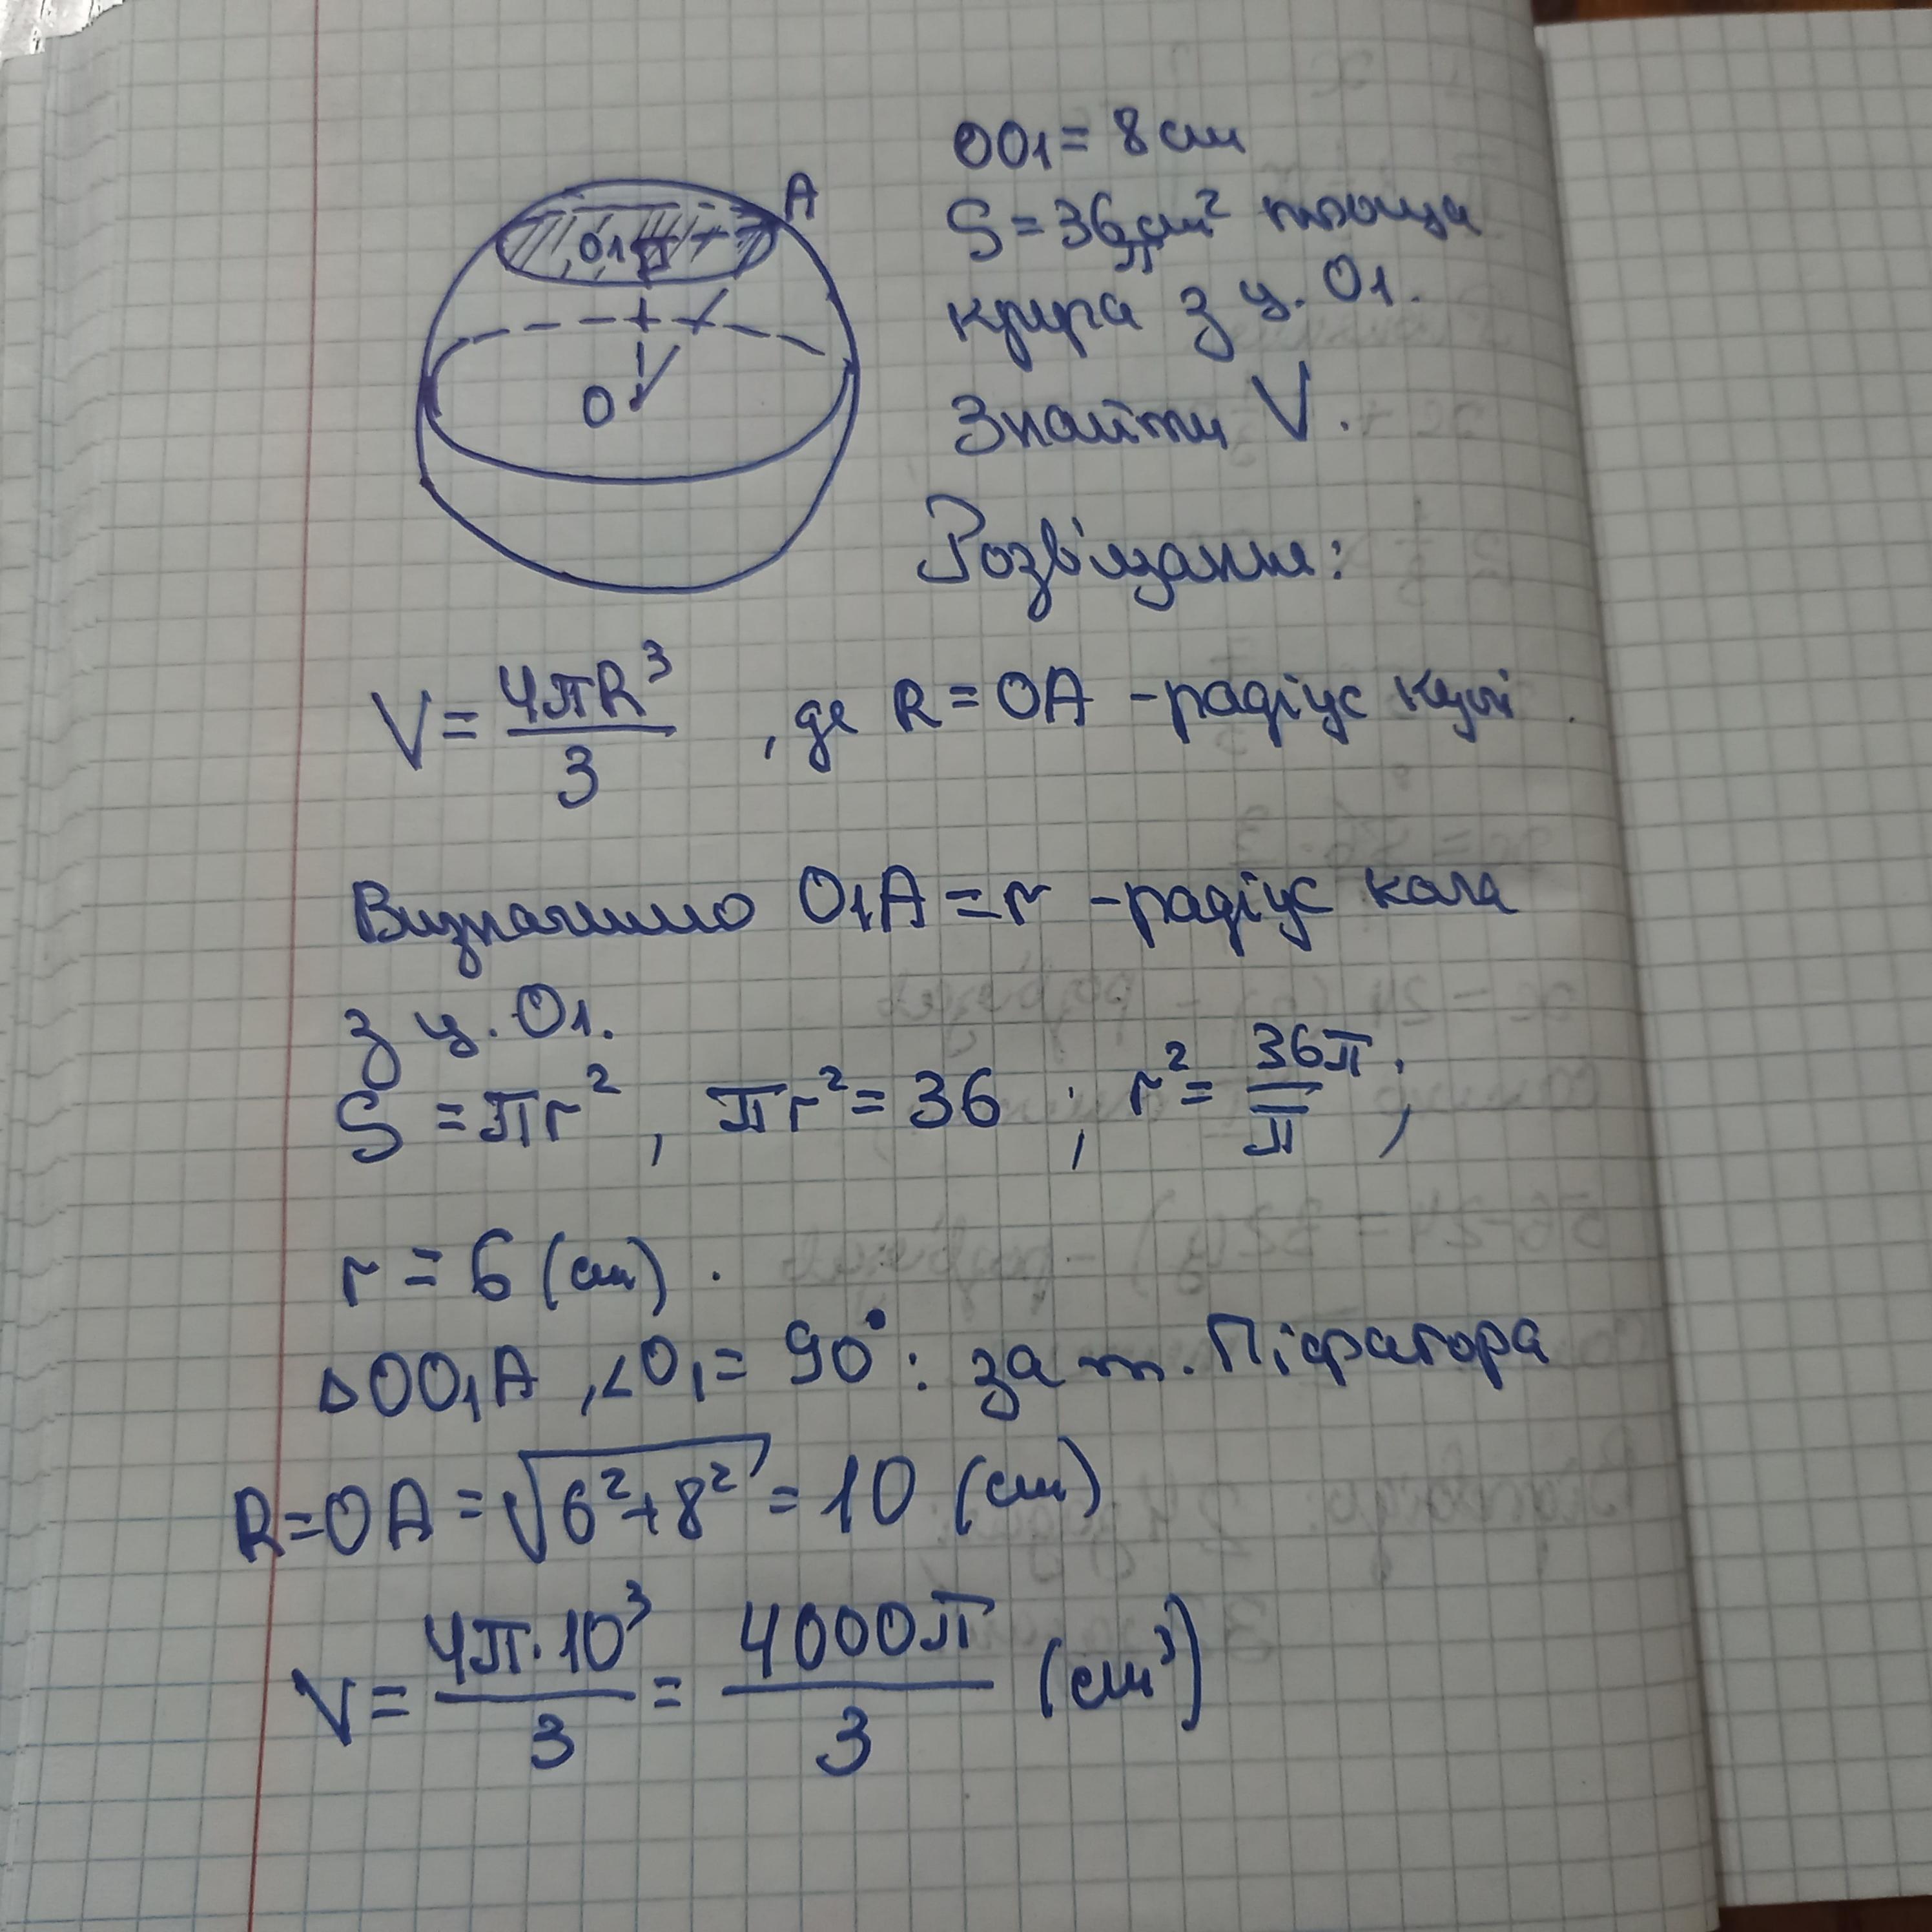 A
O1
O
OO1 = 8 см
S = 36π см² площа
круга з ц. O1.
Знайти V.
Розв'язання:
V = 4πR³/3 , де R = OA - радіус кулі
Визначимо O1A = r - радіус кола
з ц. O1.
S = πr² , πr² = 36 ; r² = 36π/π ;
r = 6 (см).
△OO1A , ∠O1 = 90° : за т. Піфагора
R = OA = √(6² + 8²) = 10 (см)
V = 4π·10³/3 = 4000π/3 (см³)